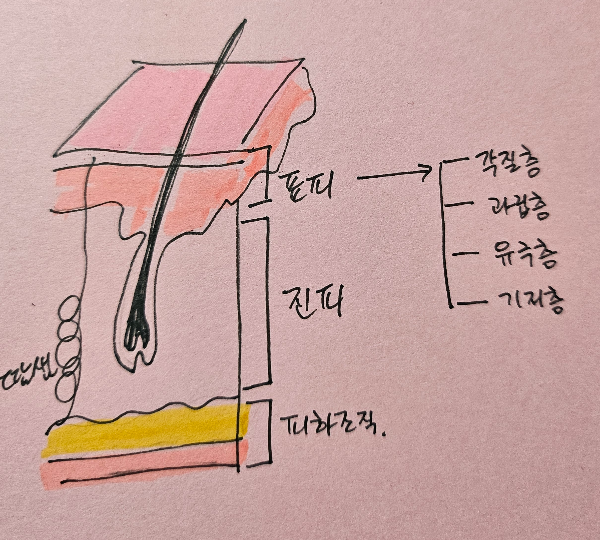 표피
각질층
과립층
유극층
기저층
진피
땀샘
피하조직.